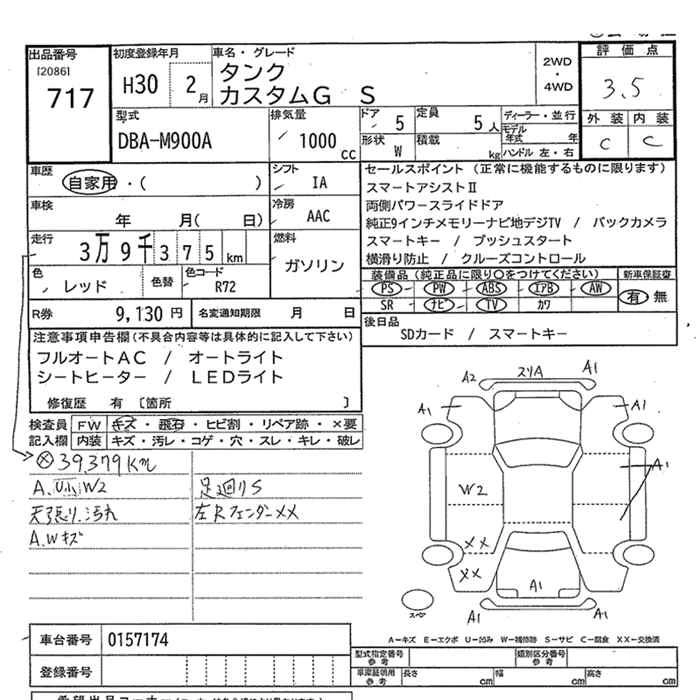 出品番号
[2086]
717
初度登録年月
H30 2月
車名・グレード
タンク
カスタムG S
2WD
・
4WD
評価点
3.5
外装 内装
C C
型式
DBA-M900A
排気量
1000 cc
ドア 5
形状 W
定員 5人
積載 kg
ディーラー・並行
モデル年式 年
ハンドル 左・右
車歴
自家用・( )
シフト
IA
車検
年 月( 日)
冷房
AAC
走行
3万9千375km
燃料
ガソリン
色
レッド
色替
色コード
R72
R券 9,130円
名変通知期限 月 日
セールスポイント (正常に機能するものに限ります)
スマートアシストⅡ
両側パワースライドドア
純正9インチメモリーナビ地デジTV / バックカメラ
スマートキー / プッシュスタート
横滑り防止 / クルーズコントロール
装備品 (純正品に限り○をつけてください)
新車保証書
PS PW ABS エアB AW
有 無
SR ナビ TV カワ
後日品
SDカード / スマートキー
注意事項申告欄(不具合内容等は具体的に記入して下さい)
フルオートAC / オートライト
シートヒーター / LEDライト
修復歴 有 〔箇所 〕
検査員記入欄
FW キズ・飛石・ヒビ割・リペア跡・×要
内装 キズ・汚レ・コゲ・穴・スレ・キレ・破レ
39379Km
A.U小W2
天張り汚れ
A.Wキズ
足廻りS
左Rフェンダー××
A2 スリA A1
A1 A1
A1
W2
××
××
A1
A1 A1
スペア
A-キズ E-エクボ U-凹み W-補修跡 S-サビ C-腐食 XX-交換済
車台番号 0157174
登録番号
型式指定番号 参考
類別区分番号 参考
車庫証明用 参考
長さ cm 幅 cm 高さ cm